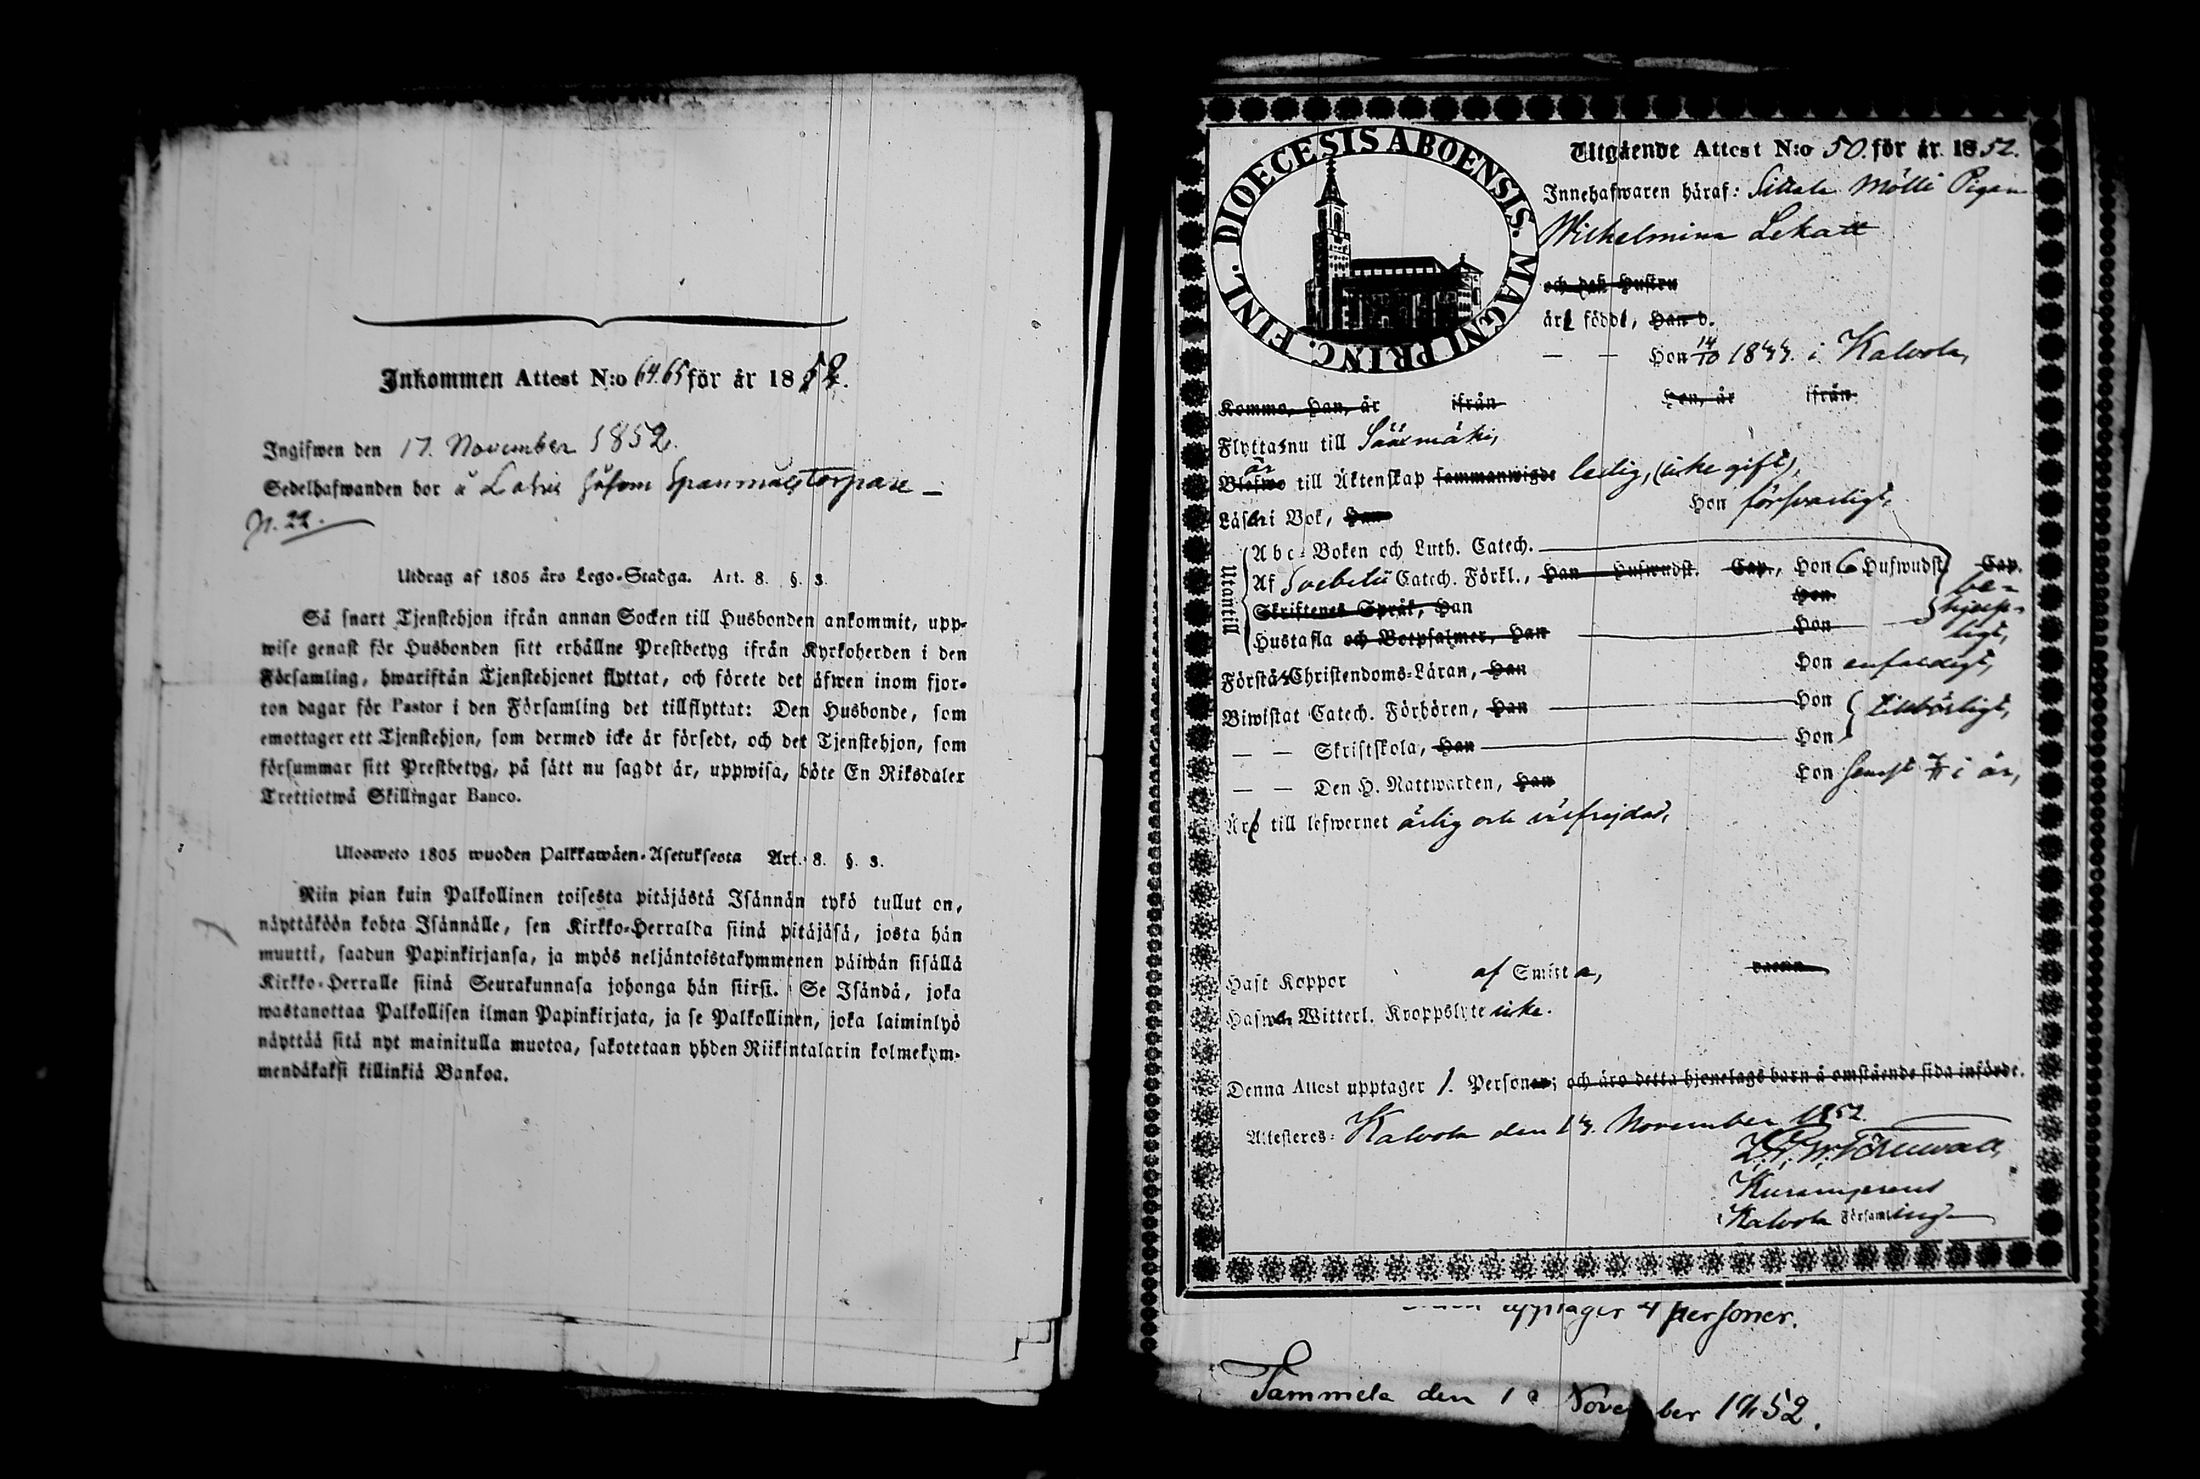 Inkommen Attest N:o 64.65 för år 1852.
Ingifwen den 17. November 1852.
Sedelhafwanden bor å
N. 22.
Utdrag af 1805 års Lego-Stadga. Art. 8. §. 3.
Så snart Tjenstehjon ifrån annan Socken till Husbonden ankommit, upp-
wise genast för Husbonden sitt erhållne Prestbetyg ifrån Kyrkoherden i den
Församling, hwarifrån Tjenstehjonet flyttat, och förete det äfwen inom fjor-
ton dagar för Pastor i den Församling det tillflyttat: Den Husbonde, som
emottager ett Tjenstehjon, som dermed icke är försedt, och det Tjenstehjon, som
försummar sitt Prestbetyg, på sätt nu sagdt är, uppwisa, böte En Riksdaler
Trettiotwå Skillingar Banco.
Ulosweto 1805 wuoden Palkkawäen-Asetuksesta Art. 8. §. 3.
Niin pian kuin Palkollinen toisesta pitäjästä Isännän tykö tullut on,
näyttäköön kohta Isännälle, sen Kirkko-Herralda siinä pitäjäsä, josta hän
muutti, saadun Papinkirjansa, ja myös neljäntoistakymmenen päiwän sisällä
Kirkko-Herralle siinä Seurakunnasa johonga hän siirsi. Se Isändä, joka
wastanottaa Palkollisen ilman Papinkirjata, ja se Palkollinen, joka laiminlyö
näyttää sitä nyt mainitulla muotoa, sakotetaan yhden Riikintalarin kolmekym-
mendäkaksi killinkiä Bankoa.
DIOECESIS ABOENSIS. MAGNI PRINC. FINL.
Utgående Attest N:o 50. för år 1852.
Innehafwaren häraf: Mölli Pigan
Wilhelmina Lekatt
och dess hustru
är född, Han d.
— — Hon 14/10 1844. i Kalvola,
Komma, Han, år ifrån Hon, år ifrån
Flyttar nu till Sääxmäki,
är
Blefwo till Äktenskap sammanwigde ledig, (icke gift),
Läser i Bok, Han Hon försvarligt,
Utantill
Abc-Boken och Luth. Catech.
Af Svebelii Catech. Förkl., Han Hufwudst. Cap., Hon 6 Hufwudst. Cap.
Skriftenes Språk, Han Hon
Hustafla och Botpsalmer, Han Hon
be-
hjelp-
ligt,
Förstår Christendoms-Läran, Han Hon enfaldigt,
Biwistat Catech. Förhören, Han Hon
— — Skriftskola, Han Hon
tillbörligt,
— — Den H. Nattwarden, Han Hon senast i år,
Är till lefwernet ärlig och välfrejdad,
Haft Koppor af Smitta,
Hafwer Witterl. Kroppslyte icke.
Denna Attest upptager 1. Person; och äro detta hjonelags barn å omstående sida införde.
Attesteras: Kalvola den 14. November 1852.
i Kalvola Församling
upptager 4 personer.
Tammela den 1 November 1852.